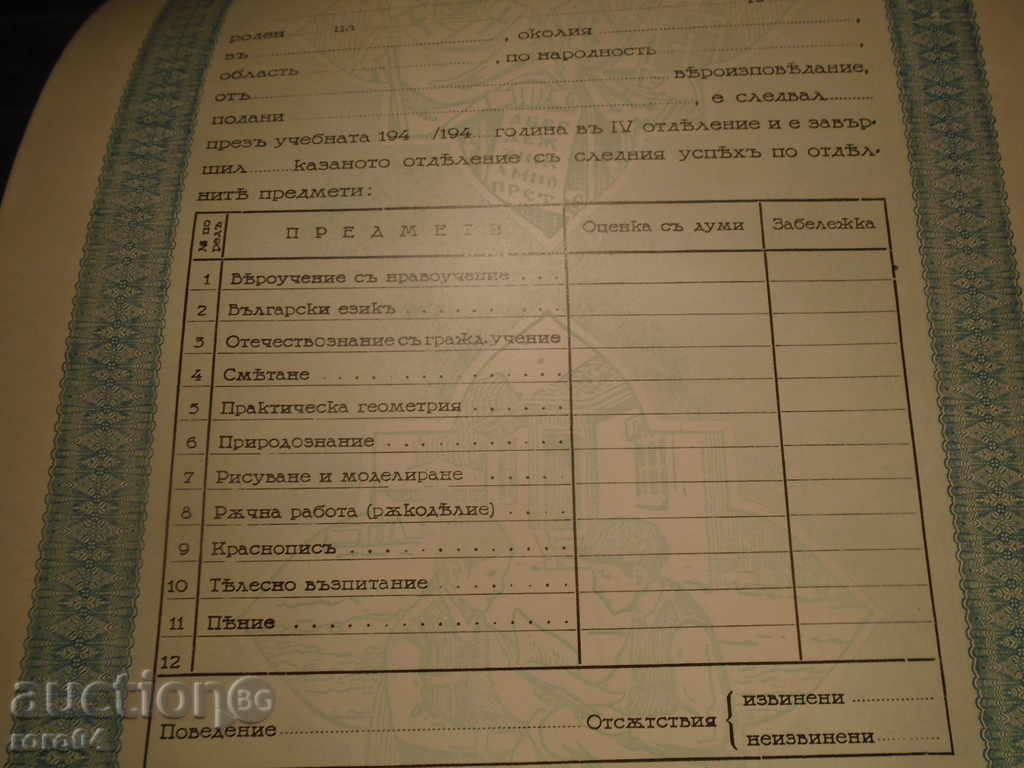 роден на
въ ........ , околия ........ ,
область ........ , по народность ........ ,
отъ ........ вѣроизповѣдание,
подани ........ , е следвал ........
презъ учебната 194 /194 година въ IV отдѣление и е завър-
шил ........ казаното отдѣление съ следния успѣхъ по отдѣл-
нитѣ предмети:
№ по редъ ПРЕДМЕТИ Оценка съ думи Забележка
1 Вѣроучение съ нравоучение . . .
2 Български езикъ . . . . . . . . .
3 Отечествознание съ гражд. учение
4 Смѣтане . . . . . . . . . . . . .
5 Практическа геометрия . . . . . .
6 Природознание . . . . . . . . . .
7 Рисуване и моделиране . . . . . .
8 Рѫчна работа (рѫкодѣлие) . . . .
9 Краснописъ . . . . . . . . . . . .
10 Тѣлесно възпитание . . . . . . . .
11 Пѣние . . . . . . . . . . . . . . .
12
извинени ........
Поведение ........ Отсѫтствия
неизвинени ........
auctionBG
roro04